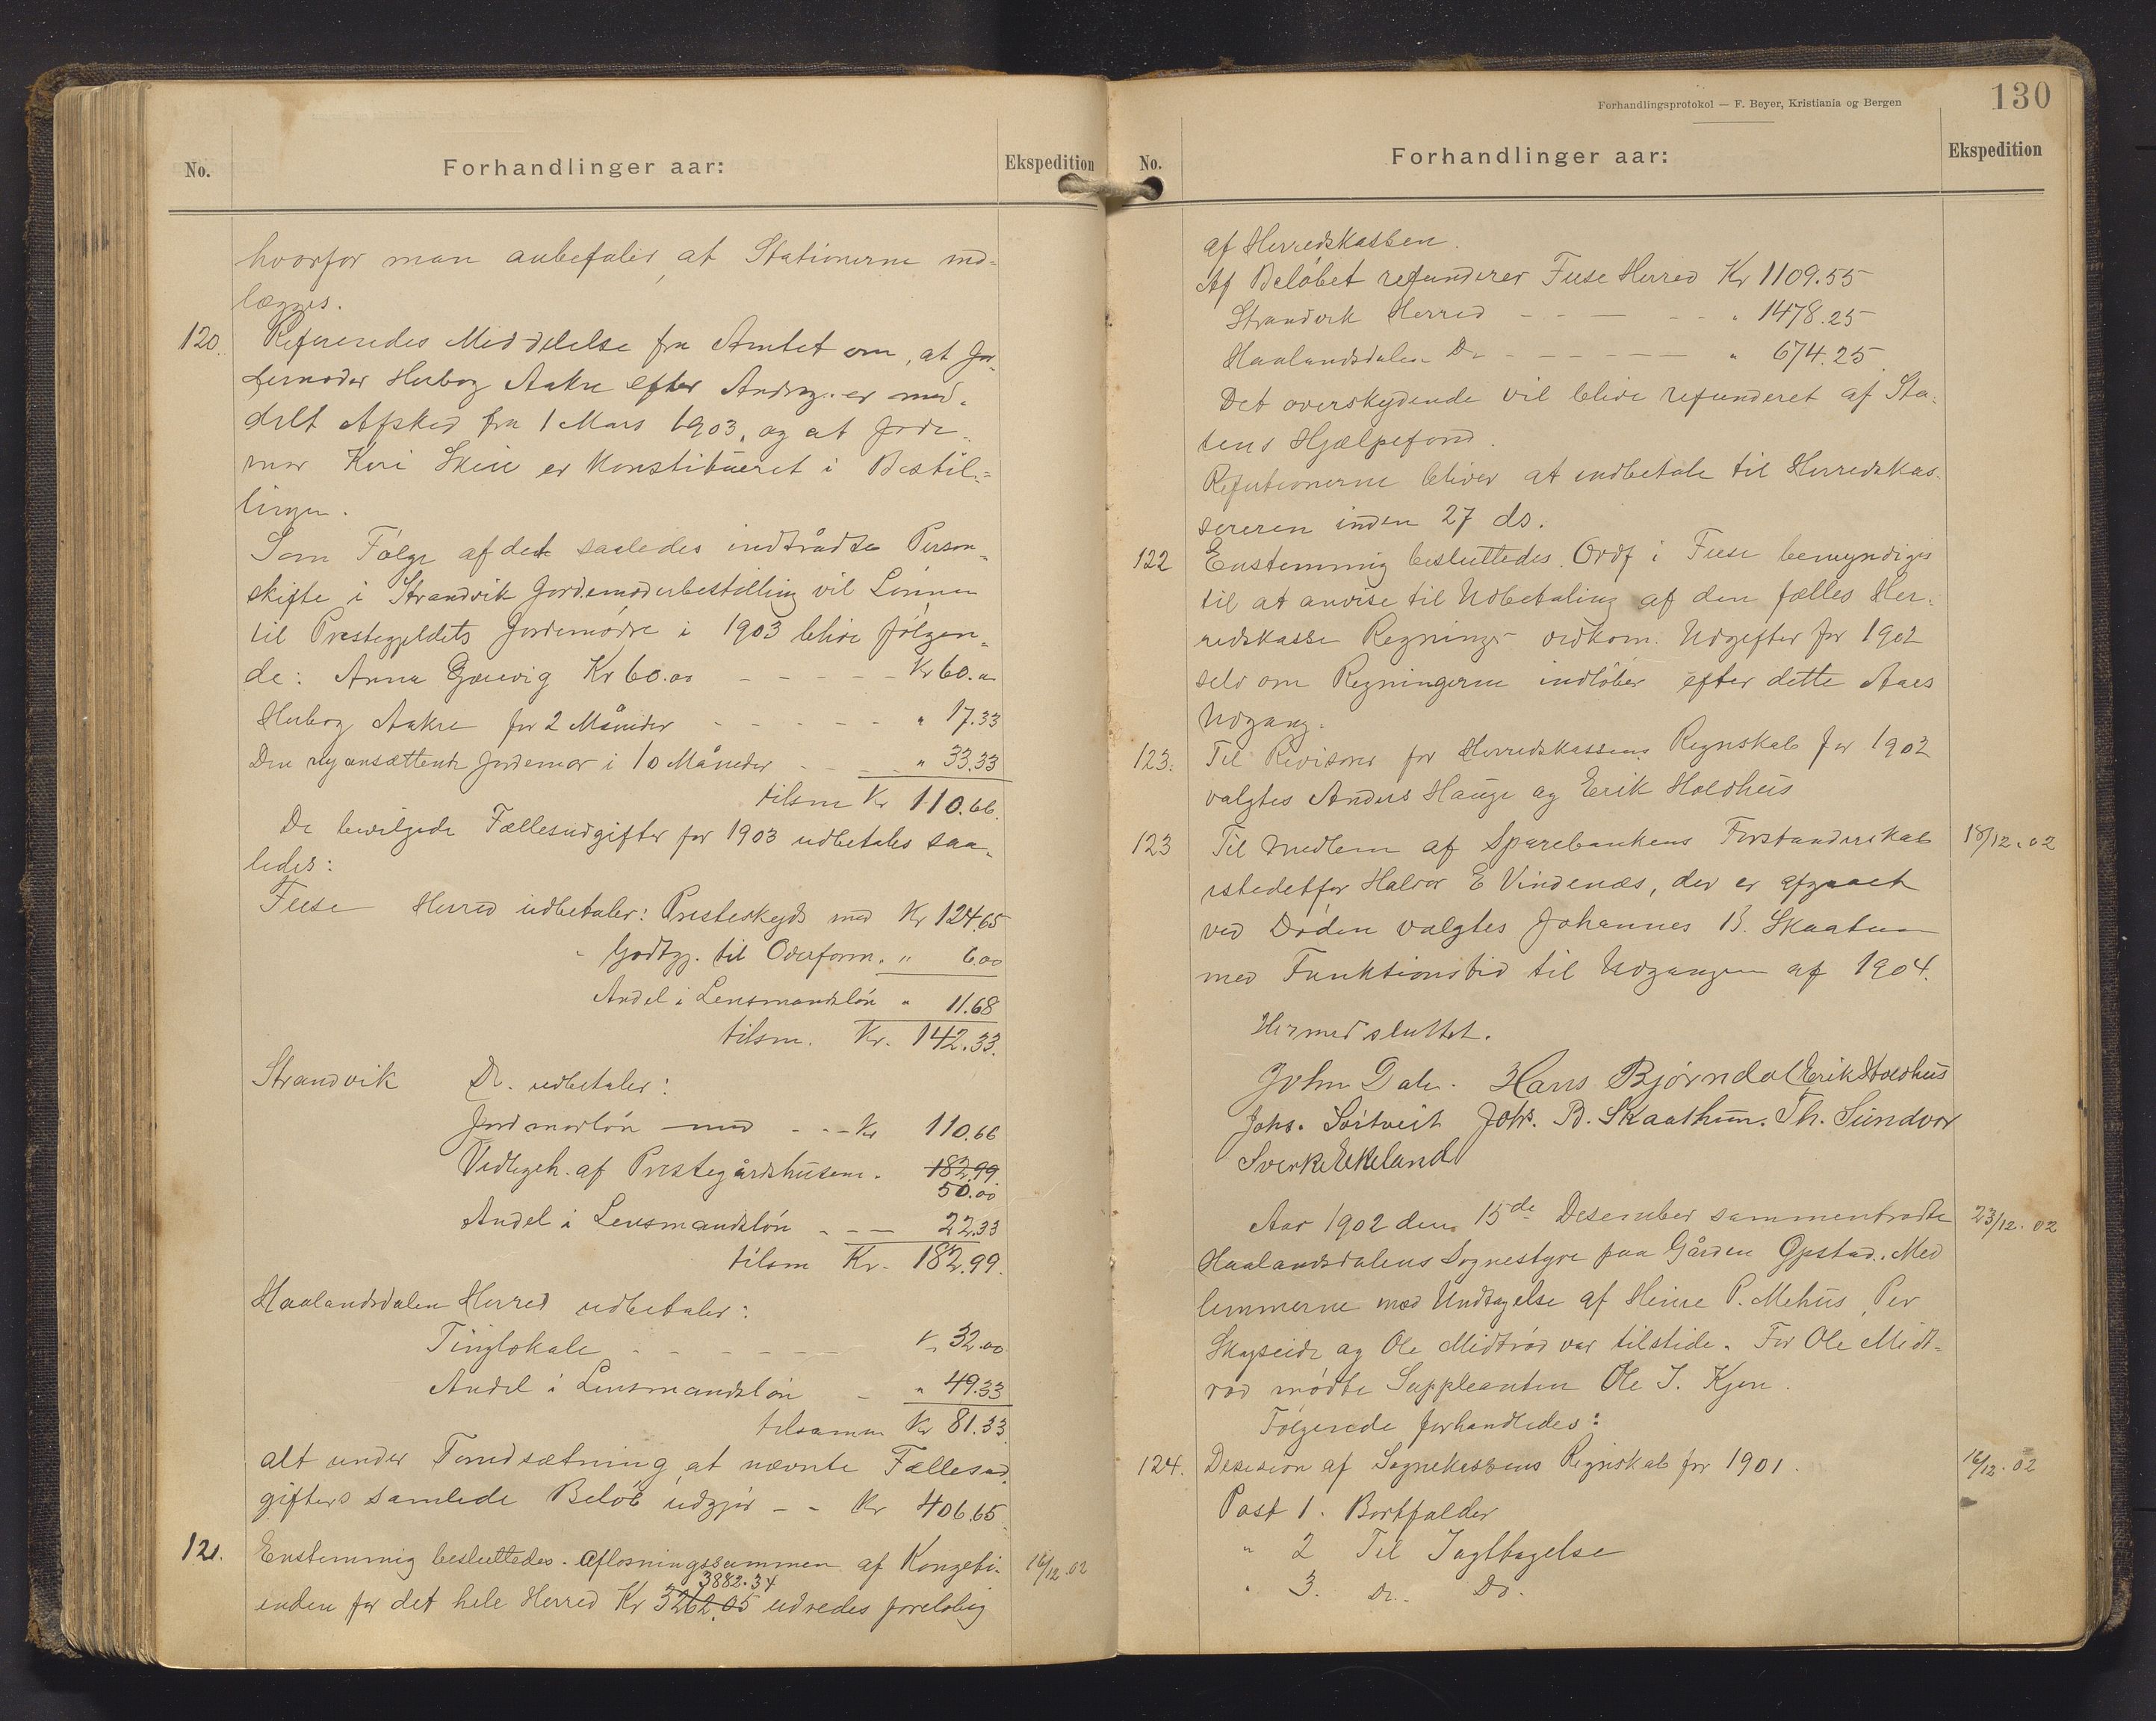 No. Forhandlinger aar: Ekspedition
hvorfor man anbefaler, at Stationerne ned-
lægges.
120. Refereredes Meddelelse fra Amtet om, at Jor-
demoder Herborg Aakre efter Andrag. er med-
delt Afsked fra 1 Mars 1903, og at Jorde-
mor Kari Skeie er Konstitueret i Bestil-
lingen.
Som Følge af det saaledes indtrådte Person-
skifte i Strandvik Jordemoderbestilling vil Lønnen
til Prestegjeldets Jordemødre i 1903 blive følgen-
de: Anna Gjervig Kr 60.00 - - - - - Kr 60.00
Herborg Aakre for 2 Måneder - - - - - " 17.33
Den nyansættende Jordemor i 10 Måneder - - - " 33.33
tilsm Kr 110.66.
De bevilgede Fællesudgifter for 1903 udbetales saa-
ledes:
Fuse Herred udbetaler: Presteskyds med Kr 124.65
" Godtgj. til Overform. " 6.00
Andel i Lensmandsløn " 11.68
tilsm. Kr. 142.33.
Strandvik Do. udbetaler:
Jordmorløn med - - - Kr 110.66
Vedligeh. af Prestegårdshusene. 182.99
50.00
Andel i Lensmandsløn - — 22.33
tilsm Kr. 182.99.
Haalandsdalen Herred udbetaler:
Tinglokale - - - - - - Kr 32.00
Andel i Lensmandsløn - " 49.33
tilsamm Kr 81.33
alt under Forudsætning at nævnte Fællesud-
gifters samlede Beløb udgjør - - Kr 406.65
121. Enstemmig besluttedes. Afløsningssummen af Kongeti- 16/12.02
3882.34
enden for det hele Herred Kr 3262.05 udredes foreløbig
Forhandlingsprotokol — F. Beyer, Kristiania og Bergen 130
No. Forhandlinger aar: Ekspedition
af Herredskassen.
Af Beløbet refunderer Fuse Herred Kr 1109.55
Strandvik Herred - - — - - " 1478.25
Haalandsdalen Do - - - - — " 674.25.
Det overskydende vil blive refunderet af Sta-
tens Hjælpefond.
Refutionerne bliver at indbetale til Herredskas-
sereren inden 27 ds.
122 Enstemmig besluttedes. Ordf i Fuse bemyndiges
til at anvise til Udbetaling af den fælles Her-
redskasse Regninger vedkom. Udgifter for 1902
selv om Regningerne indløber efter dette Aars
Udgang.
123. Til Revisorer for Herredskassens Regnskab for 1902
valgtes Anders Hauge og Erik Holdhus
123 Til Medlem af Sparebankens Forstanderskab 18/12.02
istedetfor Halvor E Vindenæs, der er afgaaet
ved Døden valgtes Johannes B. Skaatun
med Funktionstid til Udgangen af 1904.
Hermed sluttet.
John Dale. Hans Bjørndal Erik Holdhus
Johs. Sørtveit Johs. B. Skaathun. Th. Sundvor
Sverke Ekeland
Aar 1902 den 15de Desember sammentraadte 23/12.02
Haalandsdalens Sognestyre paa Gården Gpstad. Med
lemmerne med Undtagelse af Heine P. Mehus, Per
Skogseide og Ole Midtrød var tilstede. For Ole Midt-
rød mødte Suppleanten Ole J. Kjen.
Følgende forhandledes:
124. Desesion af Sognekassens Regnskab for 1901. 16/12.02
Post 1. Bortfalder
" 2 Til Iagttagelse
" 3. Do. Do.